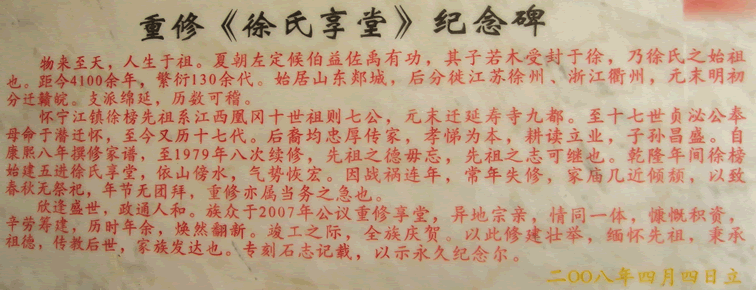 重修《徐氏享堂》纪念碑
物来至天，人生于祖。夏朝左定候伯益佐禹有功，其子若木受封于徐，乃徐氏之始祖
也。距今4100余年，繁衍130余代。始居山东郯城，后分徙江苏徐州、浙江衢州，元末明初
分迁赣皖。支派绵延，历数可稽。
怀宁江镇徐榜先祖系江西凰冈十世祖则七公，元末迁延寿寺九都。至十七世贞泌公奉
母命于潜迁怀，至今又历十七代。后裔均忠厚传家，孝悌为本，耕读立业，子孙昌盛。自
康熙八年撰修家谱，至1979年八次续修，先祖之德毋忘，先祖之志可继也。乾隆年间徐榜
始建五进徐氏享堂，依山傍水，气势恢宏。因战祸连年，常年失修，家庙几近倾颓，以致
春秋无祭祀，年节无团拜，重修亦属当务之急也。
欣逢盛世，政通人和。族众于2007年公议重修享堂，异地宗亲，情同一体，慷慨积资，
辛劳筹建，历时年余，焕然翻新。竣工之际，全族庆贺。以此修建壮举，缅怀先祖，秉承
祖德，传教后世，家族发达也。专刻石志记载，以示永久纪念尔。
二〇〇八年四月四日立